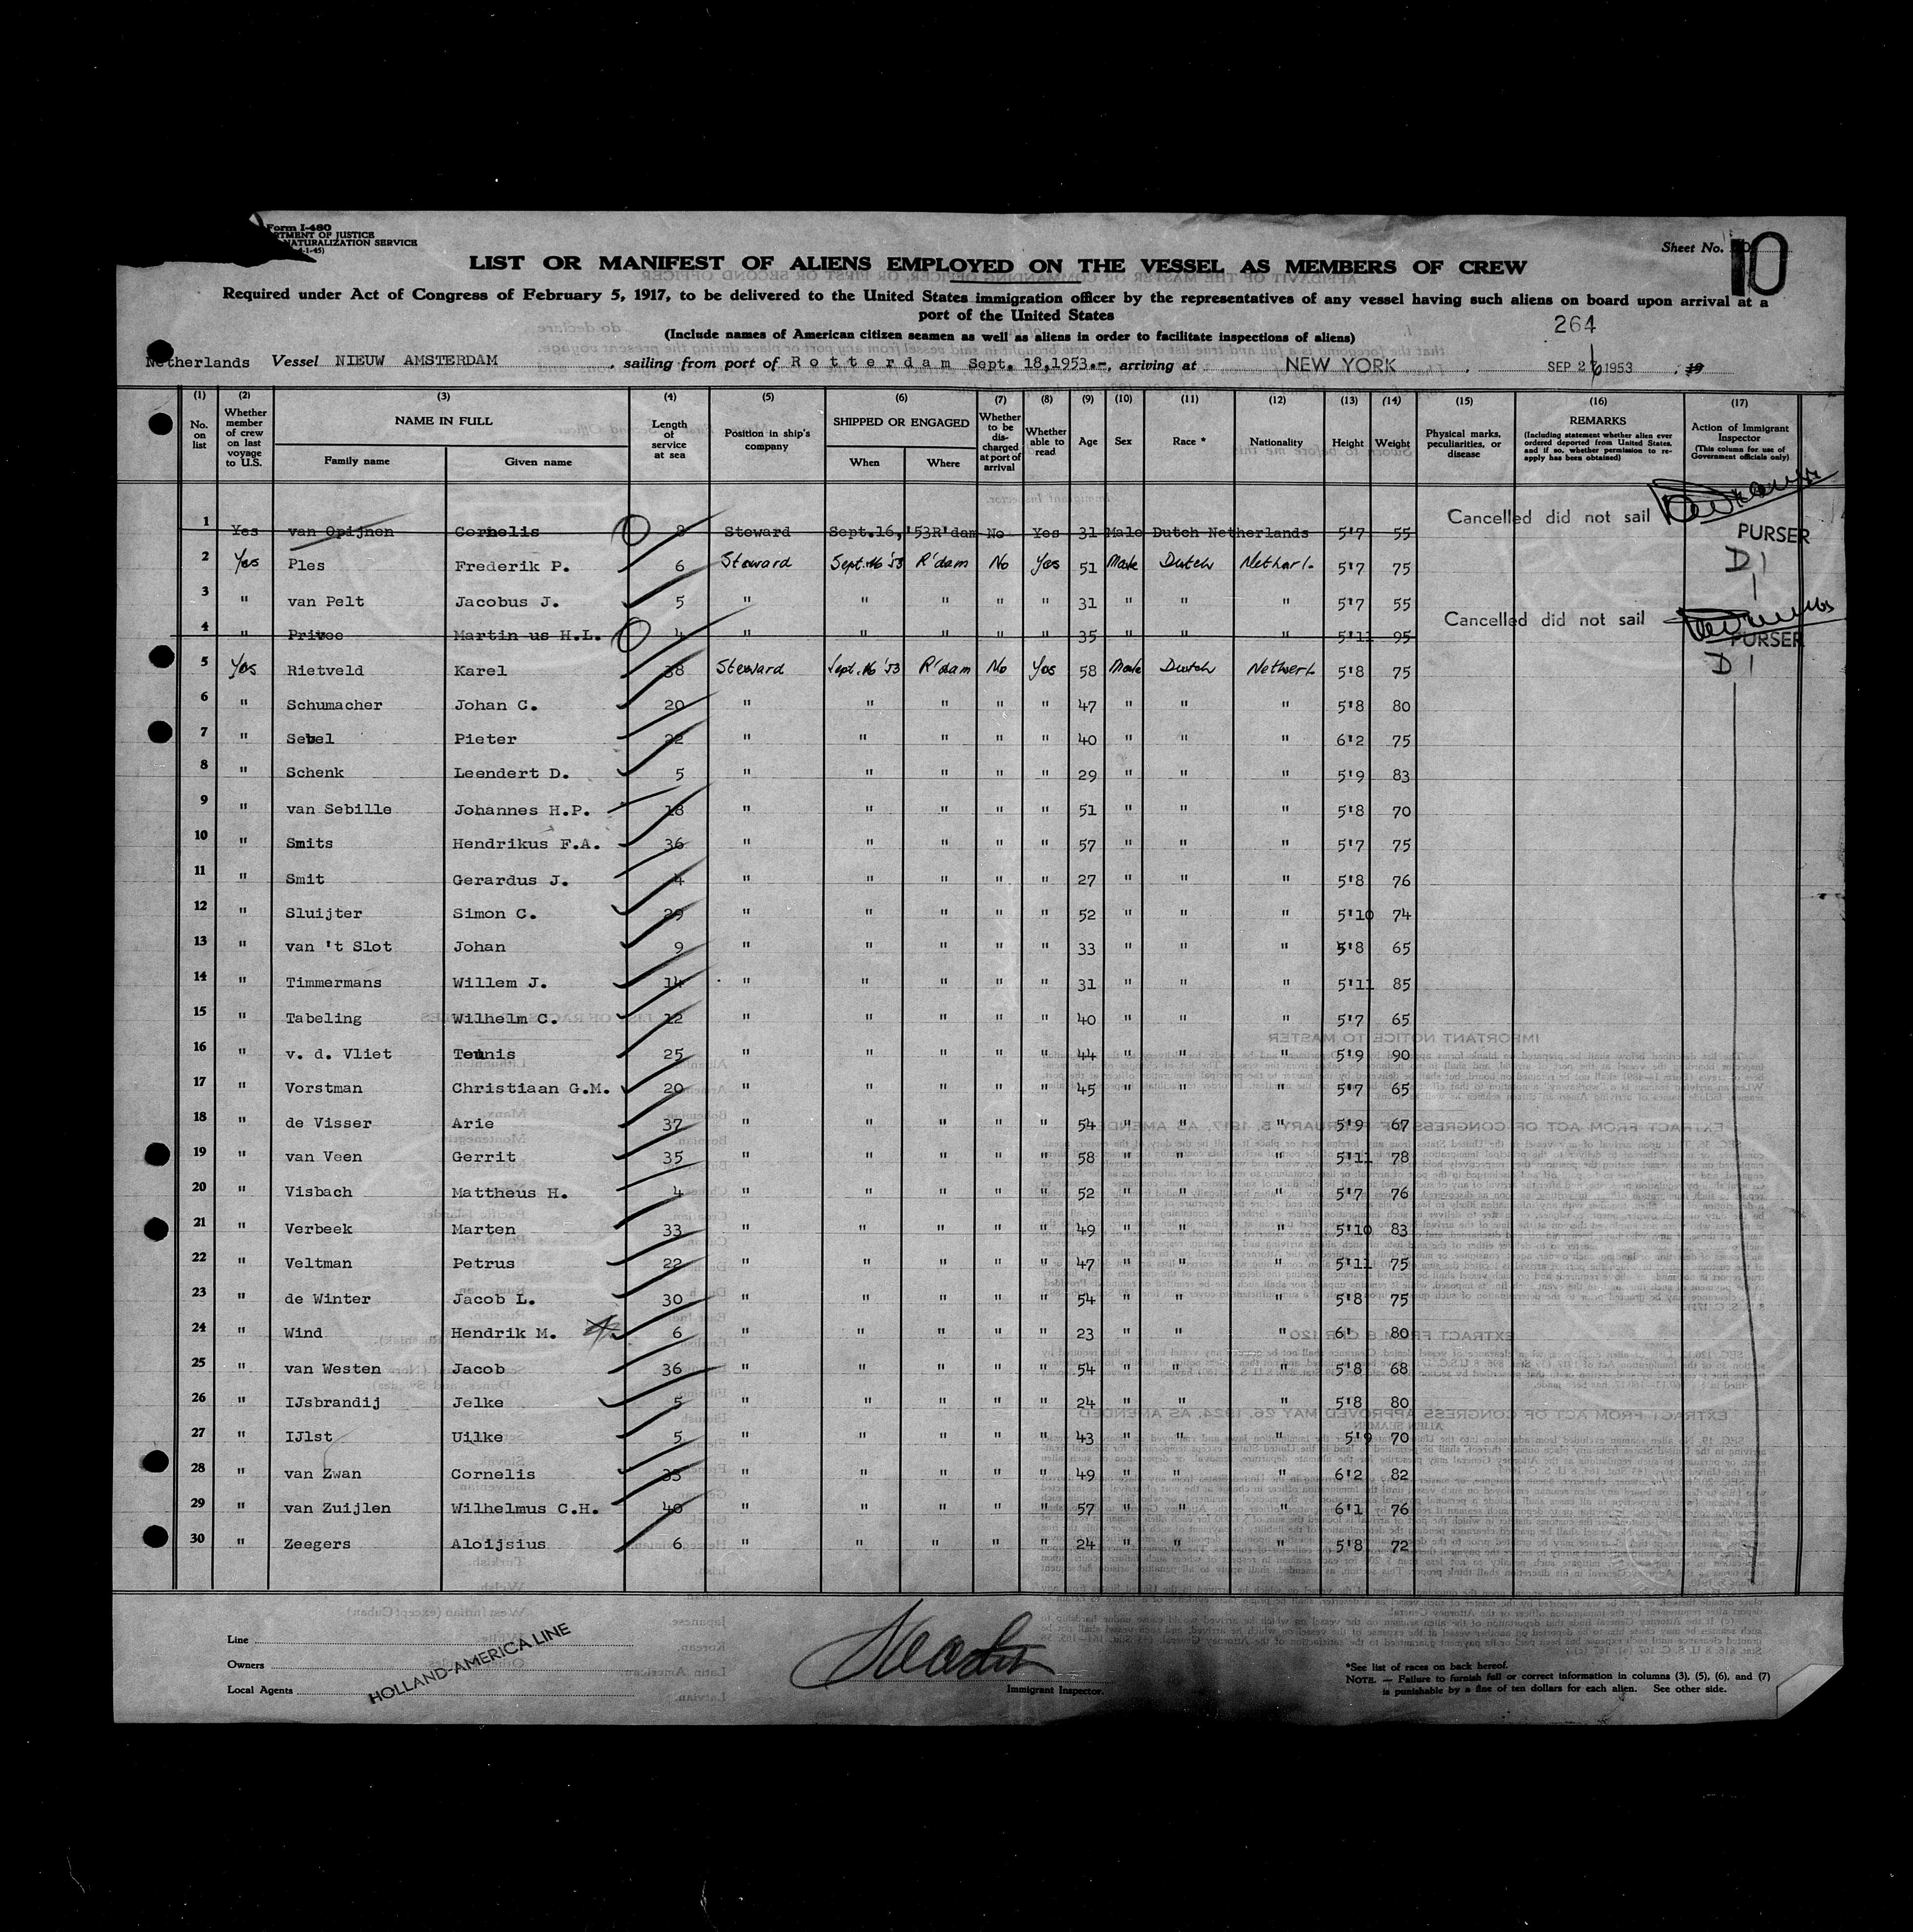 Form I-480
RTMENT OF JUSTICE
NATURALIZATION SERVICE
4-1-45)
Sheet No. 10
LIST OR MANIFEST OF ALIENS EMPLOYED ON THE VESSEL AS MEMBERS OF CREW
Required under Act of Congress of February 5, 1917, to be delivered to the United States immigration officer by the representatives of any vessel having such aliens on board upon arrival at a
port of the United States
(Include names of American citizen seamen as well as aliens in order to facilitate inspections of aliens)
264
Netherlands Vessel NIEUW AMSTERDAM, sailing from port of Rotterdam Sept. 18,1953.-, arriving at NEW YORK, SEP 26 1953, 19
(1) (2) (3) (4) (5) (6) (7) (8) (9) (10) (11) (12) (13) (14) (15) (16) (17)
No. on list
Whether member of crew on last voyage to U.S.
NAME IN FULL
Family name Given name
Length of service at sea
Position in ship's company
SHIPPED OR ENGAGED
When Where
Whether to be discharged at port of arrival
Whether able to read
Age Sex Race * Nationality Height Weight
Physical marks, peculiarities, or disease
REMARKS
(Including statement whether alien ever ordered deported from United States, and if so, whether permission to reapply has been obtained)
Action of Immigrant Inspector
(This column for use of Government officials only)
1 Yes van Opijnen Cornelis 8 Steward Sept.16,'53 R'dam No Yes 31 Male Dutch Netherlands 5'7 55 Cancelled did not sail PURSER
2 Yes Ples Frederik P. 6 Steward Sept. 16 '53 R'dam No Yes 51 Male Dutch Netherl. 5'7 75 D1
3 " van Pelt Jacobus J. 5 " " " " " 31 " " " 5'7 55
4 " Privee Martinus H.L. 4 " " " " " 35 " " " 5'11 95 Cancelled did not sail PURSER
5 Yes Rietveld Karel 38 Steward Sept. 16 '53 R'dam No Yes 58 Male Dutch Netherl 5'8 75 D1
6 " Schumacher Johan C. 20 " " " " " 47 " " " 5'8 80
7 " Sebel Pieter 22 " " " " " 40 " " " 6'2 75
8 " Schenk Leendert D. 5 " " " " " 29 " " " 5'9 83
9 " van Sebille Johannes H.P. 18 " " " " " 51 " " " 5'8 70
10 " Smits Hendrikus F.A. 36 " " " " " 57 " " " 5'7 75
11 " Smit Gerardus J. 4 " " " " " 27 " " " 5'8 76
12 " Sluijter Simon C. 29 " " " " " 52 " " " 5'10 74
13 " van 't Slot Johan 9 " " " " " 33 " " " 5'8 65
14 " Timmermans Willem J. 14 " " " " " 31 " " " 5'11 85
15 " Tabeling Wilhelm C. 12 " " " " " 40 " " " 5'7 65
16 " v. d. Vliet Teunis 25 " " " " " 44 " " " 5'9 90
17 " Vorstman Christiaan G.M. 20 " " " " " 45 " " " 5'7 65
18 " de Visser Arie 37 " " " " " 54 " " " 5'9 67
19 " van Veen Gerrit 35 " " " " " 58 " " " 5'11 78
20 " Visbach Mattheus H. 4 " " " " " 52 " " " 5'7 76
21 " Verbeek Marten 33 " " " " " 49 " " " 5'10 83
22 " Veltman Petrus 22 " " " " " 47 " " " 5'11 75
23 " de Winter Jacob L. 30 " " " " " 54 " " " 5'8 75
24 " Wind Hendrik M. 6 " " " " " 23 " " " 6' 80
25 " van Westen Jacob 36 " " " " " 54 " " " 5'8 68
26 " IJsbrandij Jelke 5 " " " " " 24 " " " 5'8 80
27 " IJlst Uilke 5 " " " " " 43 " " " 5'9 70
28 " van Zwan Cornelis 33 " " " " " 49 " " " 6'2 82
29 " van Zuijlen Wilhelmus C.H. 40 " " " " " 57 " " " 6'1 76
30 " Zeegers Aloijsius 6 " " " " " 24 " " " 5'8 72
Line
Owners
Local Agents
HOLLAND-AMERICA LINE
Immigrant Inspector.
*See list of races on back hereof.
NOTE. — Failure to furnish full or correct information in columns (3), (5), (6), and (7)
is punishable by a fine of ten dollars for each alien. See other side.